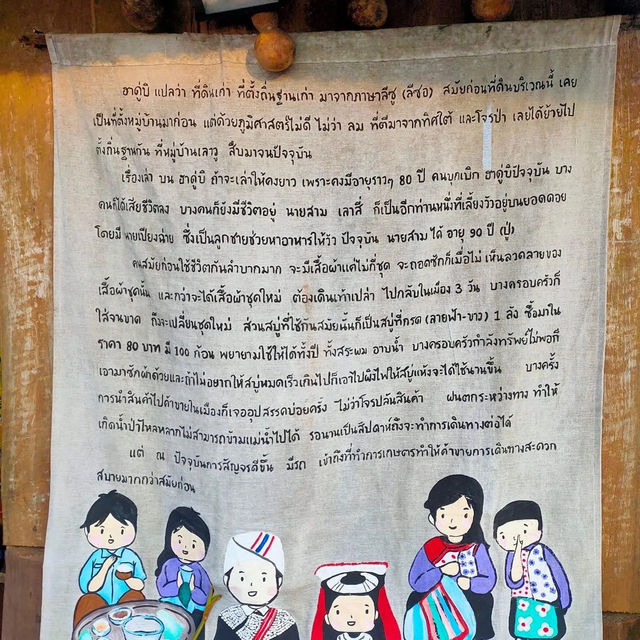 ฮาดู่บิ แปลว่า ที่ดินเก่า ที่ตั้งถิ่นฐานเก่า มาจากภาษาลีซู (ลีซอ) สมัยก่อนที่ดินบริเวณนี้ เคย
เป็นที่ตั้งหมู่บ้านมาก่อน แต่ด้วยภูมิศาสตร์ไม่ดี ไม่ว่า ลม ที่ตีมาจากทิศใต้ และโจรป่า เลยได้ย้ายไป
ตั้งถิ่นฐานกัน ที่หมู่บ้านเลาวู สืบมาจนปัจจุบัน
เรื่องเล่า บน ฮาดู่บิ ถ้าจะเล่าให้คงยาว เพราะคงมีอายุราวๆ 80 ปี คนบุกเบิก ฮาดู่บิปัจจุบัน บาง
คนก็ได้เสียชีวิตลง บางคนก็ยังมีชีวิตอยู่ นายสาม เลาสี่ ก็เป็นอีกท่านหนึ่งที่เลี้ยงวัวอยู่บนยอดดอย
โดยมี นายเปียงฉ่าย ซึ่งเป็นลูกชายช่วยหาอาหารให้วัว ปัจจุบัน นายสาม ได้ อายุ 90 ปี (ปู่)
คนสมัยก่อนใช้ชีวิตกันลำบากมาก จะมีเสื้อผ้าแค่ไม่กี่ชุด จะถอดซักก็เมื่อไม่ เห็นลวดลายของ
เสื้อผ้าชุดนั้น และกว่าจะได้เสื้อผ้าชุดใหม่ ต้องเดินเท้าเปล่า ไปกลับในเมือง 3 วัน บางครอบครัวก็
ใส่จนขาด ถึงจะเปลี่ยนชุดใหม่ ส่วนสบู่ที่ใช้กันสมัยนั้นก็เป็นสบู่ที่กรด (ลายฟ้า-ขาว) 1 ลัง ซื้อมาใน
ราคา 80 บาท มี 100 ก้อน พยายามใช้ให้ได้ทั้งปี ทั้งสระผม อาบน้ำ บางครอบครัวกำลังทรัพย์ไม่พอก็
เอามาซักผ้าด้วยและถ้าไม่อยากให้สบู่หมดเร็วเกินไปก็เอาไปผึ่งไฟให้สบู่แห้งจะได้ใช้นานขึ้น บางครั้ง
การนำสินค้าไปค้าขายในเมืองก็เจออุปสรรคบ่อยครั้ง ไม่ว่าโจรปล้นสินค้า ฝนตกระหว่างทาง ทำให้
เกิดน้ำป่าไหลหลากไม่สามารถข้ามแม่น้ำไปได้ รอนานเป็นสัปดาห์ถึงจะทำการเดินทางต่อได้
แต่ ณ ปัจจุบันการสัญจรดีขึ้น มีรถ เข้าถึงที่ทำการเกษตรทำให้ค้าขายการเดินทางสะดวก
สบายมากกว่าสมัยก่อน